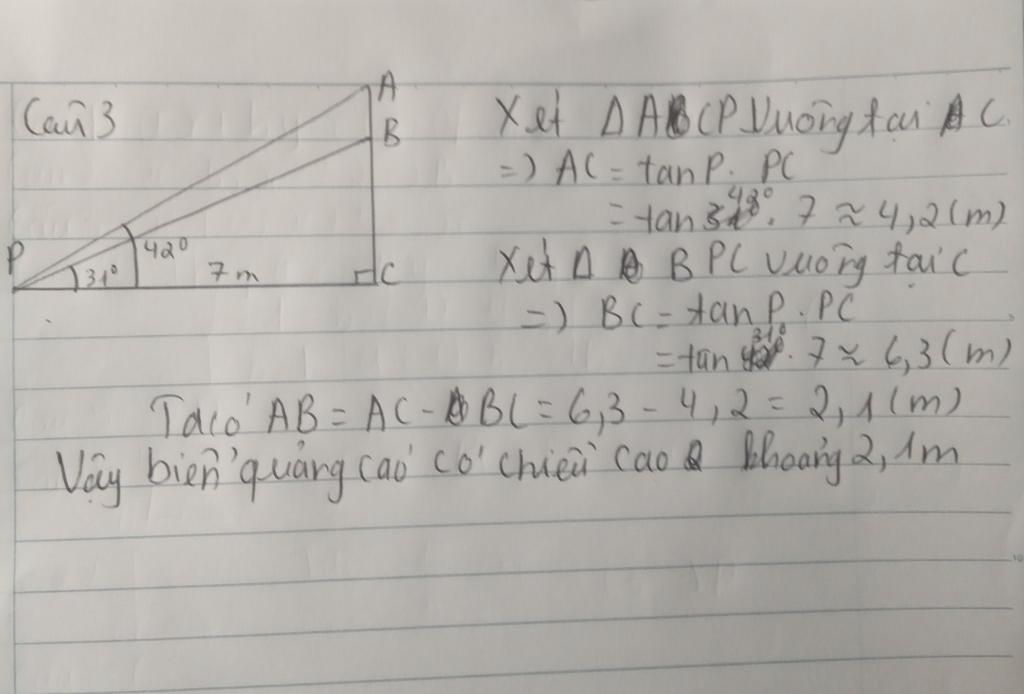 Câu 3
A
B
P
31°
42°
7 m
C
Xét Δ ACP Vuông tại C
=) AC = tan P. PC
= tan 48°. 7 ≈ 4,2 (m)
Xét Δ BPC vuông tại C
=) BC = tan P. PC
= tan 31°. 7 ≈ 6,3 (m)
Ta có AB = AC - BC = 6,3 - 4,2 = 2,1 (m)
Vậy biển quảng cáo có chiều cao khoảng 2,1m